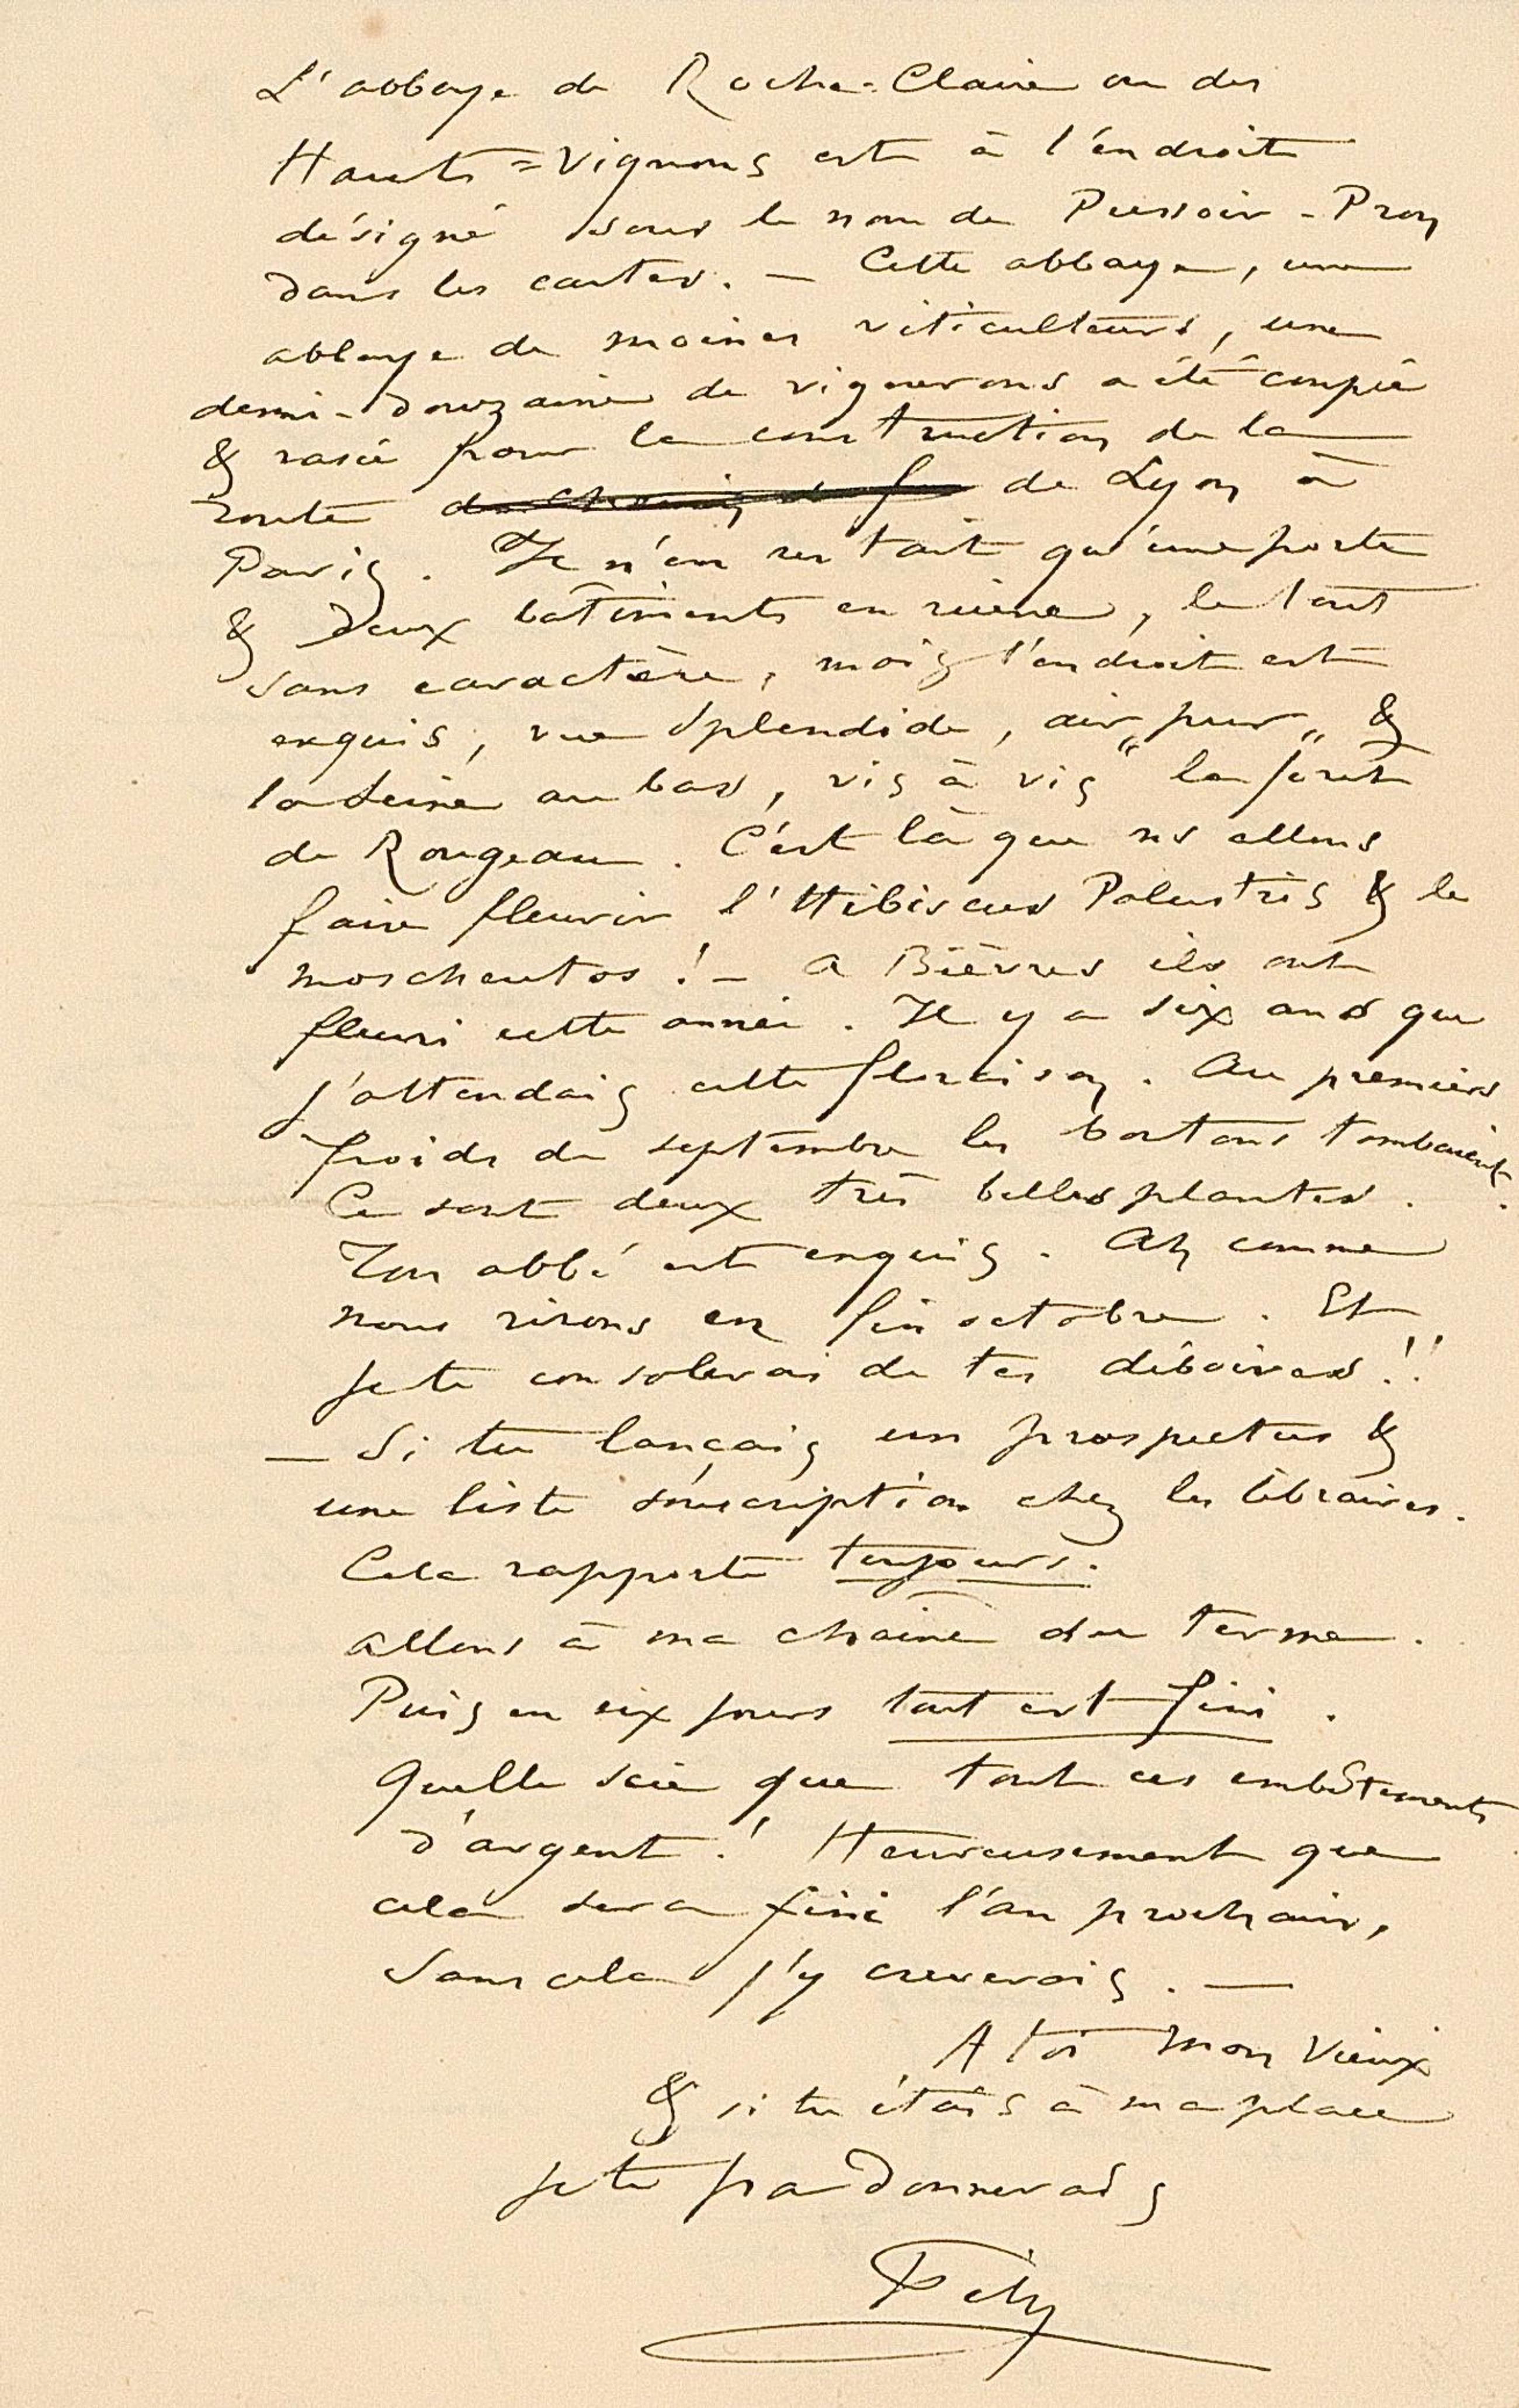 L'abbaye de Roche-Claire ou des
Hauts=Vignons est à l'endroit
désigné sous le nom de Pressoir-Prony
dans les cartes. — Cette abbaye, une
abbaye de moines viticulteurs, une
demi-douzaine de vignerons a été coupée
& rasée pour la construction de la
route du Chemin de fer de Lyon à
Paris. Il n'en restait qu'une porte
& deux bâtiments en ruine, le tout
sans caractère, mais l'endroit est
exquis, vue splendide, air "pur" &
la Seine au bas, vis à vis la forêt
de Rougeau. C'est là que ns allons
faire fleurir l'Hibiscus Palustris & le
moscheutos ! — A Bièvres ils ont
fleuri cette année. Il y a six ans que
j'attendais cette floraison. Au premiers
froids de septembre les boutons tombaient.
Ce sont deux très belles plantes.
Ton abbé est exquis. Ah comme
nous rirons en fin octobre. Et
je te consolerai de tes déboires !!
— Si tu lançais un prospectus &
une liste souscription chez les libraires.
Cela rapporte toujours.
Allons à ma chaine du terme.
Puis en six jours tout est fini.
Quelle scie que tout ces embêtements
d'argent ! Heureusement que
cela sera fini l'an prochain,
Sans cela j'y creverais. —
A toi mon Vieux
& si tu étais à ma place
je te pardonnerais
Fély